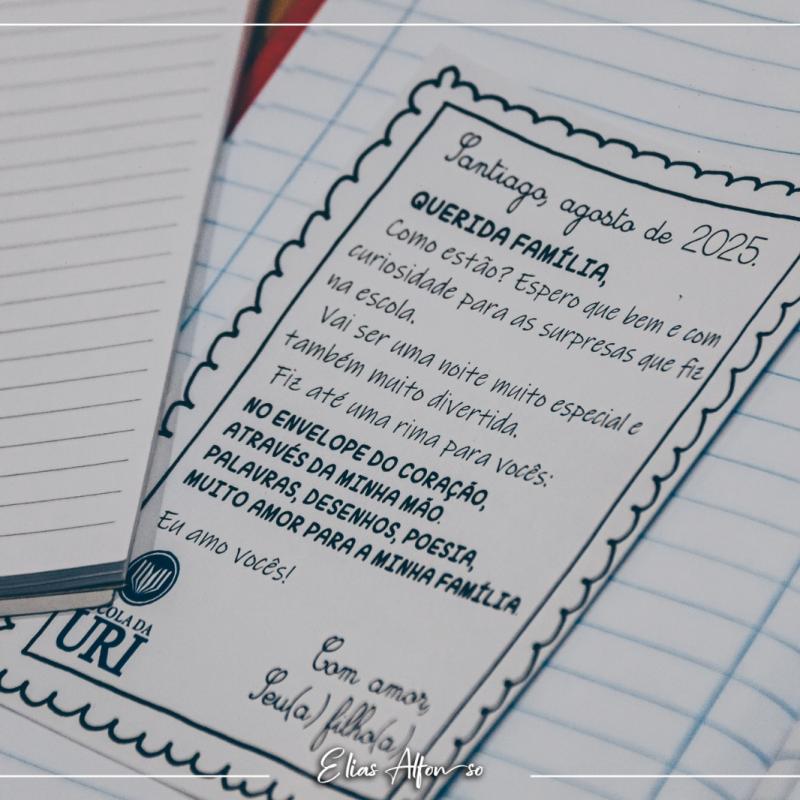 Santiago, agosto de 2025.
QUERIDA FAMÍLIA,
Como estão? Espero que bem e com
curiosidade para as surpresas que fiz
na escola.
Vai ser uma noite muito especial e
também muito divertida.
Fiz até uma rima para vocês:
NO ENVELOPE DO CORAÇÃO,
ATRAVÉS DA MINHA MÃO.
PALAVRAS, DESENHOS, POESIA,
MUITO AMOR PARA A MINHA FAMÍLIA.
Eu amo vocês!
COLA DA
URI
Com amor,
Seu(a) filho(a)
Elias Alfonso